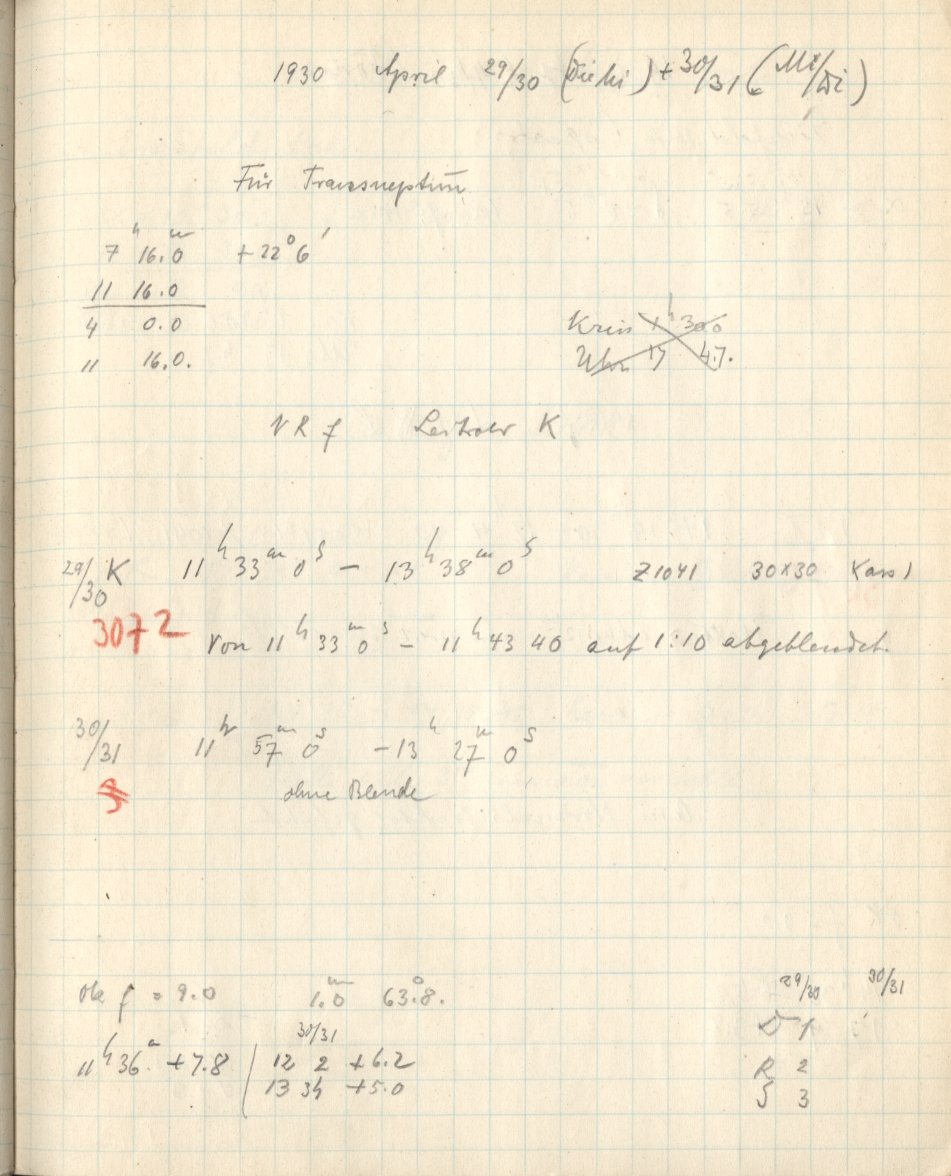 1930 April 29/30 (Die Mi) + 30/31 (Mi/Di)
Für Transneptun
7h 16.0m +22° 6'
11 16.0
4 0.0
11 16.0.
Kreis 1h 30.0
Uhr 17 47.
VR f Leitrohr K
29/30 K 11h 33m 0s – 13h 38m 0s Z1041 30x30 Kass)
3072 von 11h 33m 0s – 11h 43 40 auf 1:10 abgeblendet.
30/31 11h 57m 0s – 13h 27m 0s
ohne Blende
f = 9.0 1.0m 63°.8.
29/30 30/31
30/31
D 1
11h 36m. +7.8 12 2 +6.2
R 2
13 34 +5.0
S 3